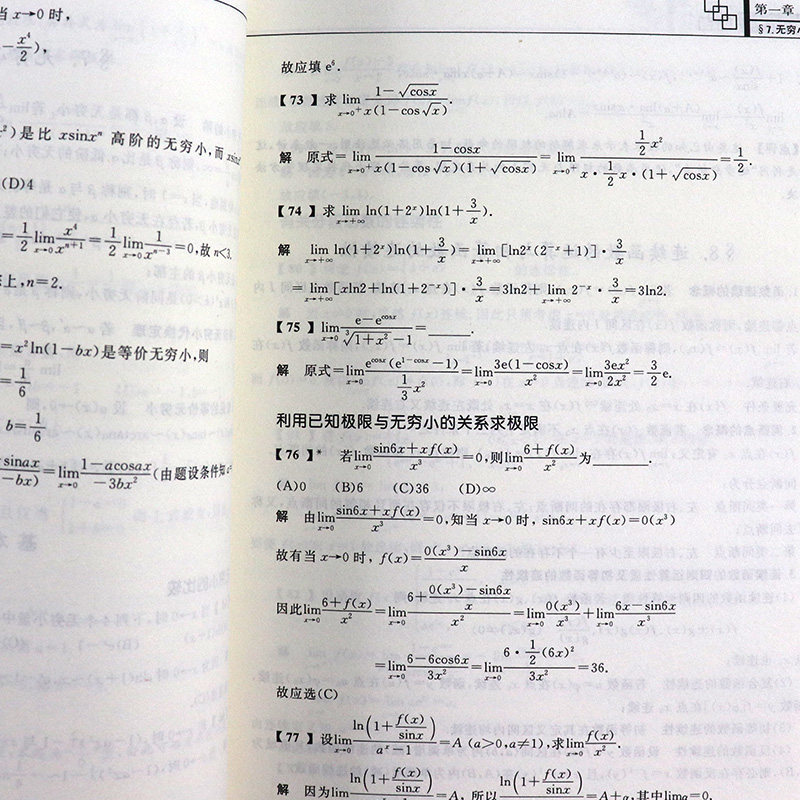 当 x→0 时,
-x⁴/2),
x²)是比 xsinxⁿ 高阶的无穷小,而
(D)4
=1/2 lim_{x→0} x⁴/x^{n+1}=1/2 lim_{x→0} 1/x^{n-3}=0,故 n<3.
上,n=2.
=x²ln(1-bx)是等价无穷小,则
=1/6
b=1/6
-sinax/-bx)=lim_{x→0} (1-acosax)/(-3bx²) (由题设条件知
第一章
§7.无穷小
故应填 e⁶.
【73】求 lim_{x→0⁺} (1-√cosx)/(x(1-cos√x)).
解 原式=lim_{x→0⁺} (1-cosx)/(x(1-cos√x)(1+√cosx))=lim_{x→0⁺} (1/2 x²)/(x·1/2 x·(1+√cosx))=1/2.
【74】求 lim_{x→+∞} ln(1+2ˣ)ln(1+3/x).
解 lim_{x→+∞} ln(1+2ˣ)ln(1+3/x)=lim_{x→+∞}[ln2ˣ(2⁻ˣ+1)]·3/x
=lim_{x→+∞}[xln2+ln(1+2⁻ˣ)]·3/x=3ln2+lim_{x→+∞} 2⁻ˣ·3/x=3ln2.
【75】lim_{x→0} (e-e^{cosx})/(∛(1+x²))=______.
解 原式=lim_{x→0} (e^{cosx}(e^{1-cosx}-1))/(1/3 x²)=lim_{x→0} 3e(1-cosx)/x²=lim_{x→0} 3ex²/2x²=3/2 e.
利用已知极限与无穷小的关系求极限
【76】* 若lim_{x→0} (sin6x+xf(x))/x³=0,则lim_{x→0} (6+f(x))/x² 为______.
(A)0 (B)6 (C)36 (D)∞
解 由lim_{x→0} (sin6x+xf(x))/x³=0,知当 x→0 时, sin6x+xf(x)=0(x³)
故有当 x→0 时, f(x)=(0(x³)-sin6x)/x
因此lim_{x→0} (6+f(x))/x²=lim_{x→0} (6+(0(x³)-sin6x)/x)/x²=lim_{x→0} 0(x³)/x³+lim_{x→0} (6x-sin6x)/x³
=lim_{x→0} (6-6cos6x)/3x²=lim_{x→0} (6·1/2(6x)²)/3x²=36.
故应选(C)
【77】设lim_{x→0} ln(1+f(x)/sinx)/(aˣ-1)=A (a>0,a≠1),求lim_{x→0} f(x)/x².
解 因为lim_{x→0} ln(1+f(x)/sinx)/(aˣ-1)=A, 所以 ln(1+f(x)/sinx)/(aˣ-1)=A+α,其中limα=0.